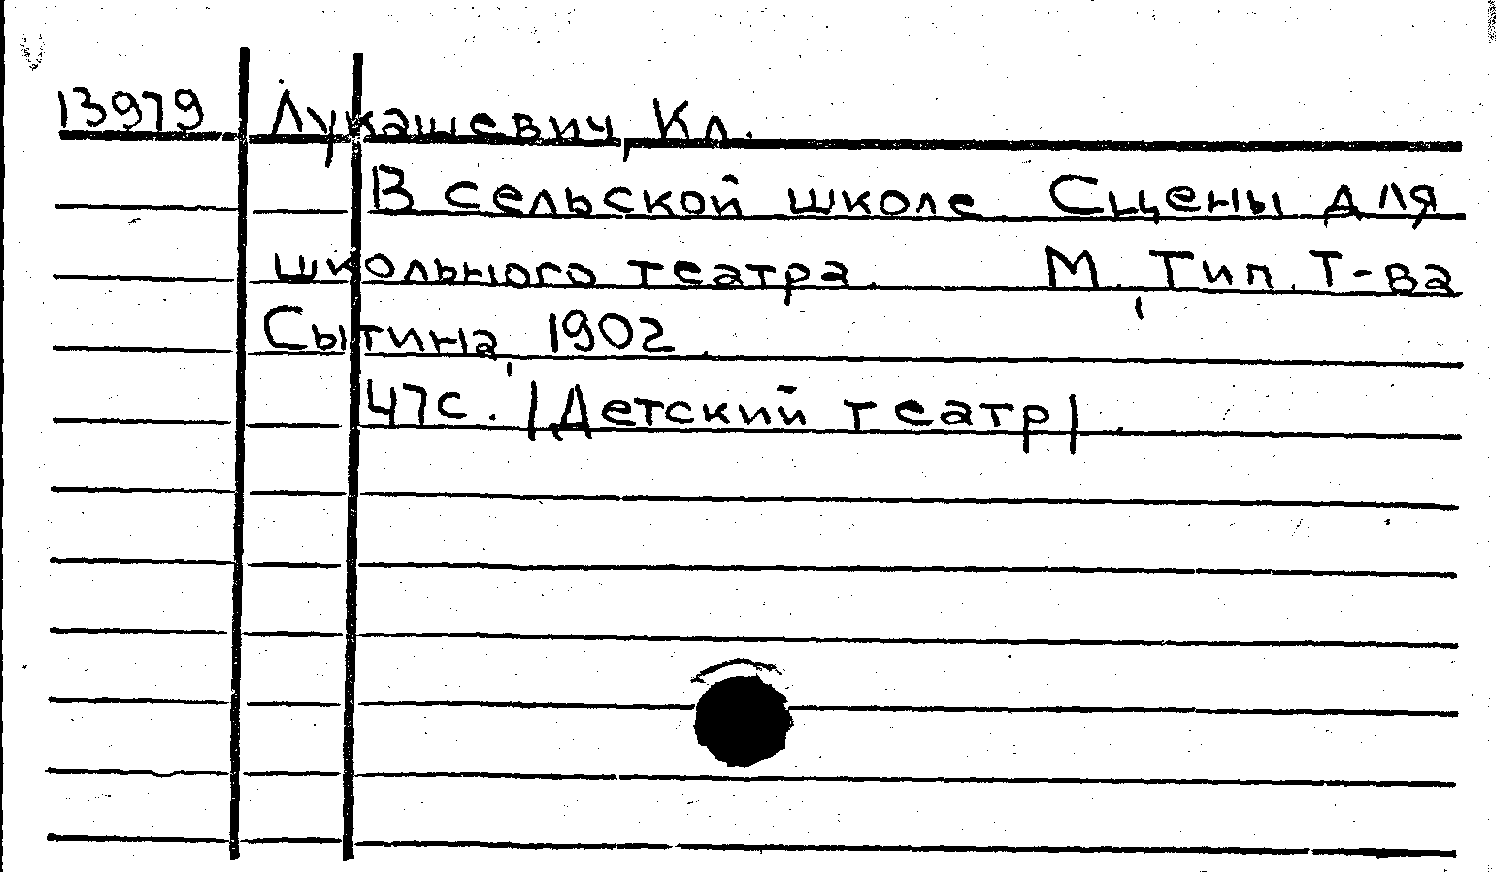 13979 Лукашевич, Кл.
В сельской школе Сцены для
школьного театра. М., Тип. Т-ва
Сытина, 1902.
47с. /Детский театр/.